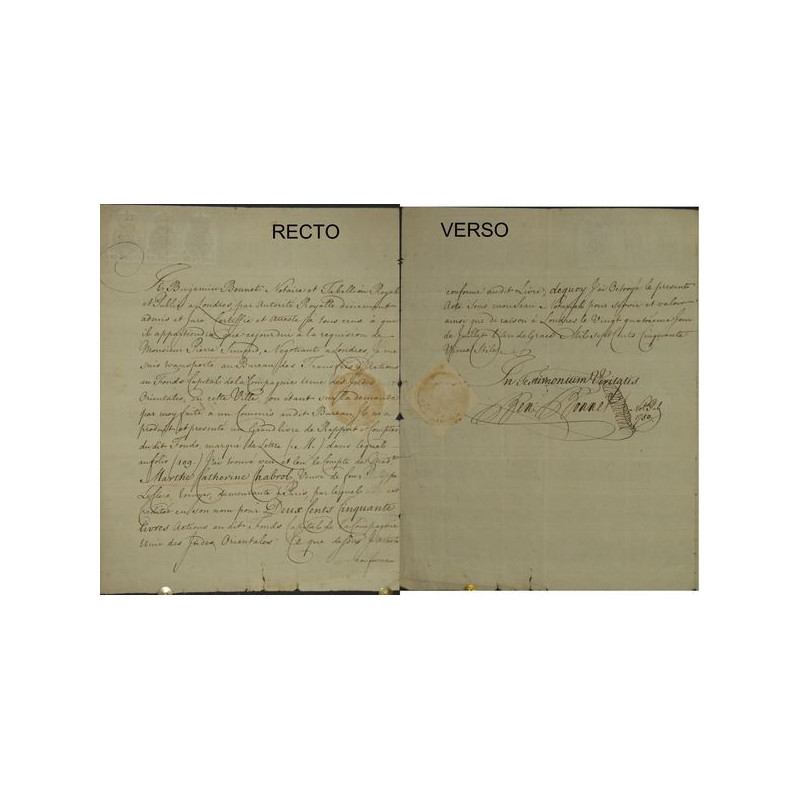 RECTO
Je Benjamin Bonnet Notaire et Tabellion Royal
et Public a Londres, par Autorité Royalle deuement
admis et juré Certiffie et Atteste à tous ceux à qui
il appartiendra Que cejourdui à la requisition de
Monsieur Pierre Negotiant a Londres Je me
suis transporté au Bureau des Transports d'Actions
au Fonds Capital de la Compagnie Unie des Indes
Orientales, en cette Ville, ou étant sur la demande
par moy faite à un Commis audit Bureau il m'a
produit et presenté un Grand livre de Rapport de Comptes
dudit Fonds, marqué de Lettre M.) dans lequel
au folio (109.) J'ai trouvé veu et leu le Compte de
Marthe Catherine Chabrol, Veuve de
demeurante à Paris, par lequel est
en son nom pour Deux Cents Cinquante
livres Actions audit Fonds Capital de la Compagnie
Unie des Indes Orientales: Ce que
conforme
VERSO
conforme audit Livre; dequoy J'ai Octroyé le presente
Acte Sous mon seing pour servir et valoir
ainsi que de raison à Londres le Vingt quatrieme Jour
de Juillet L'an de Grace Mil sept Cents Cinquante
Vieux Stile
In Testimonium Veritatis
Ben: Bonnet
1750